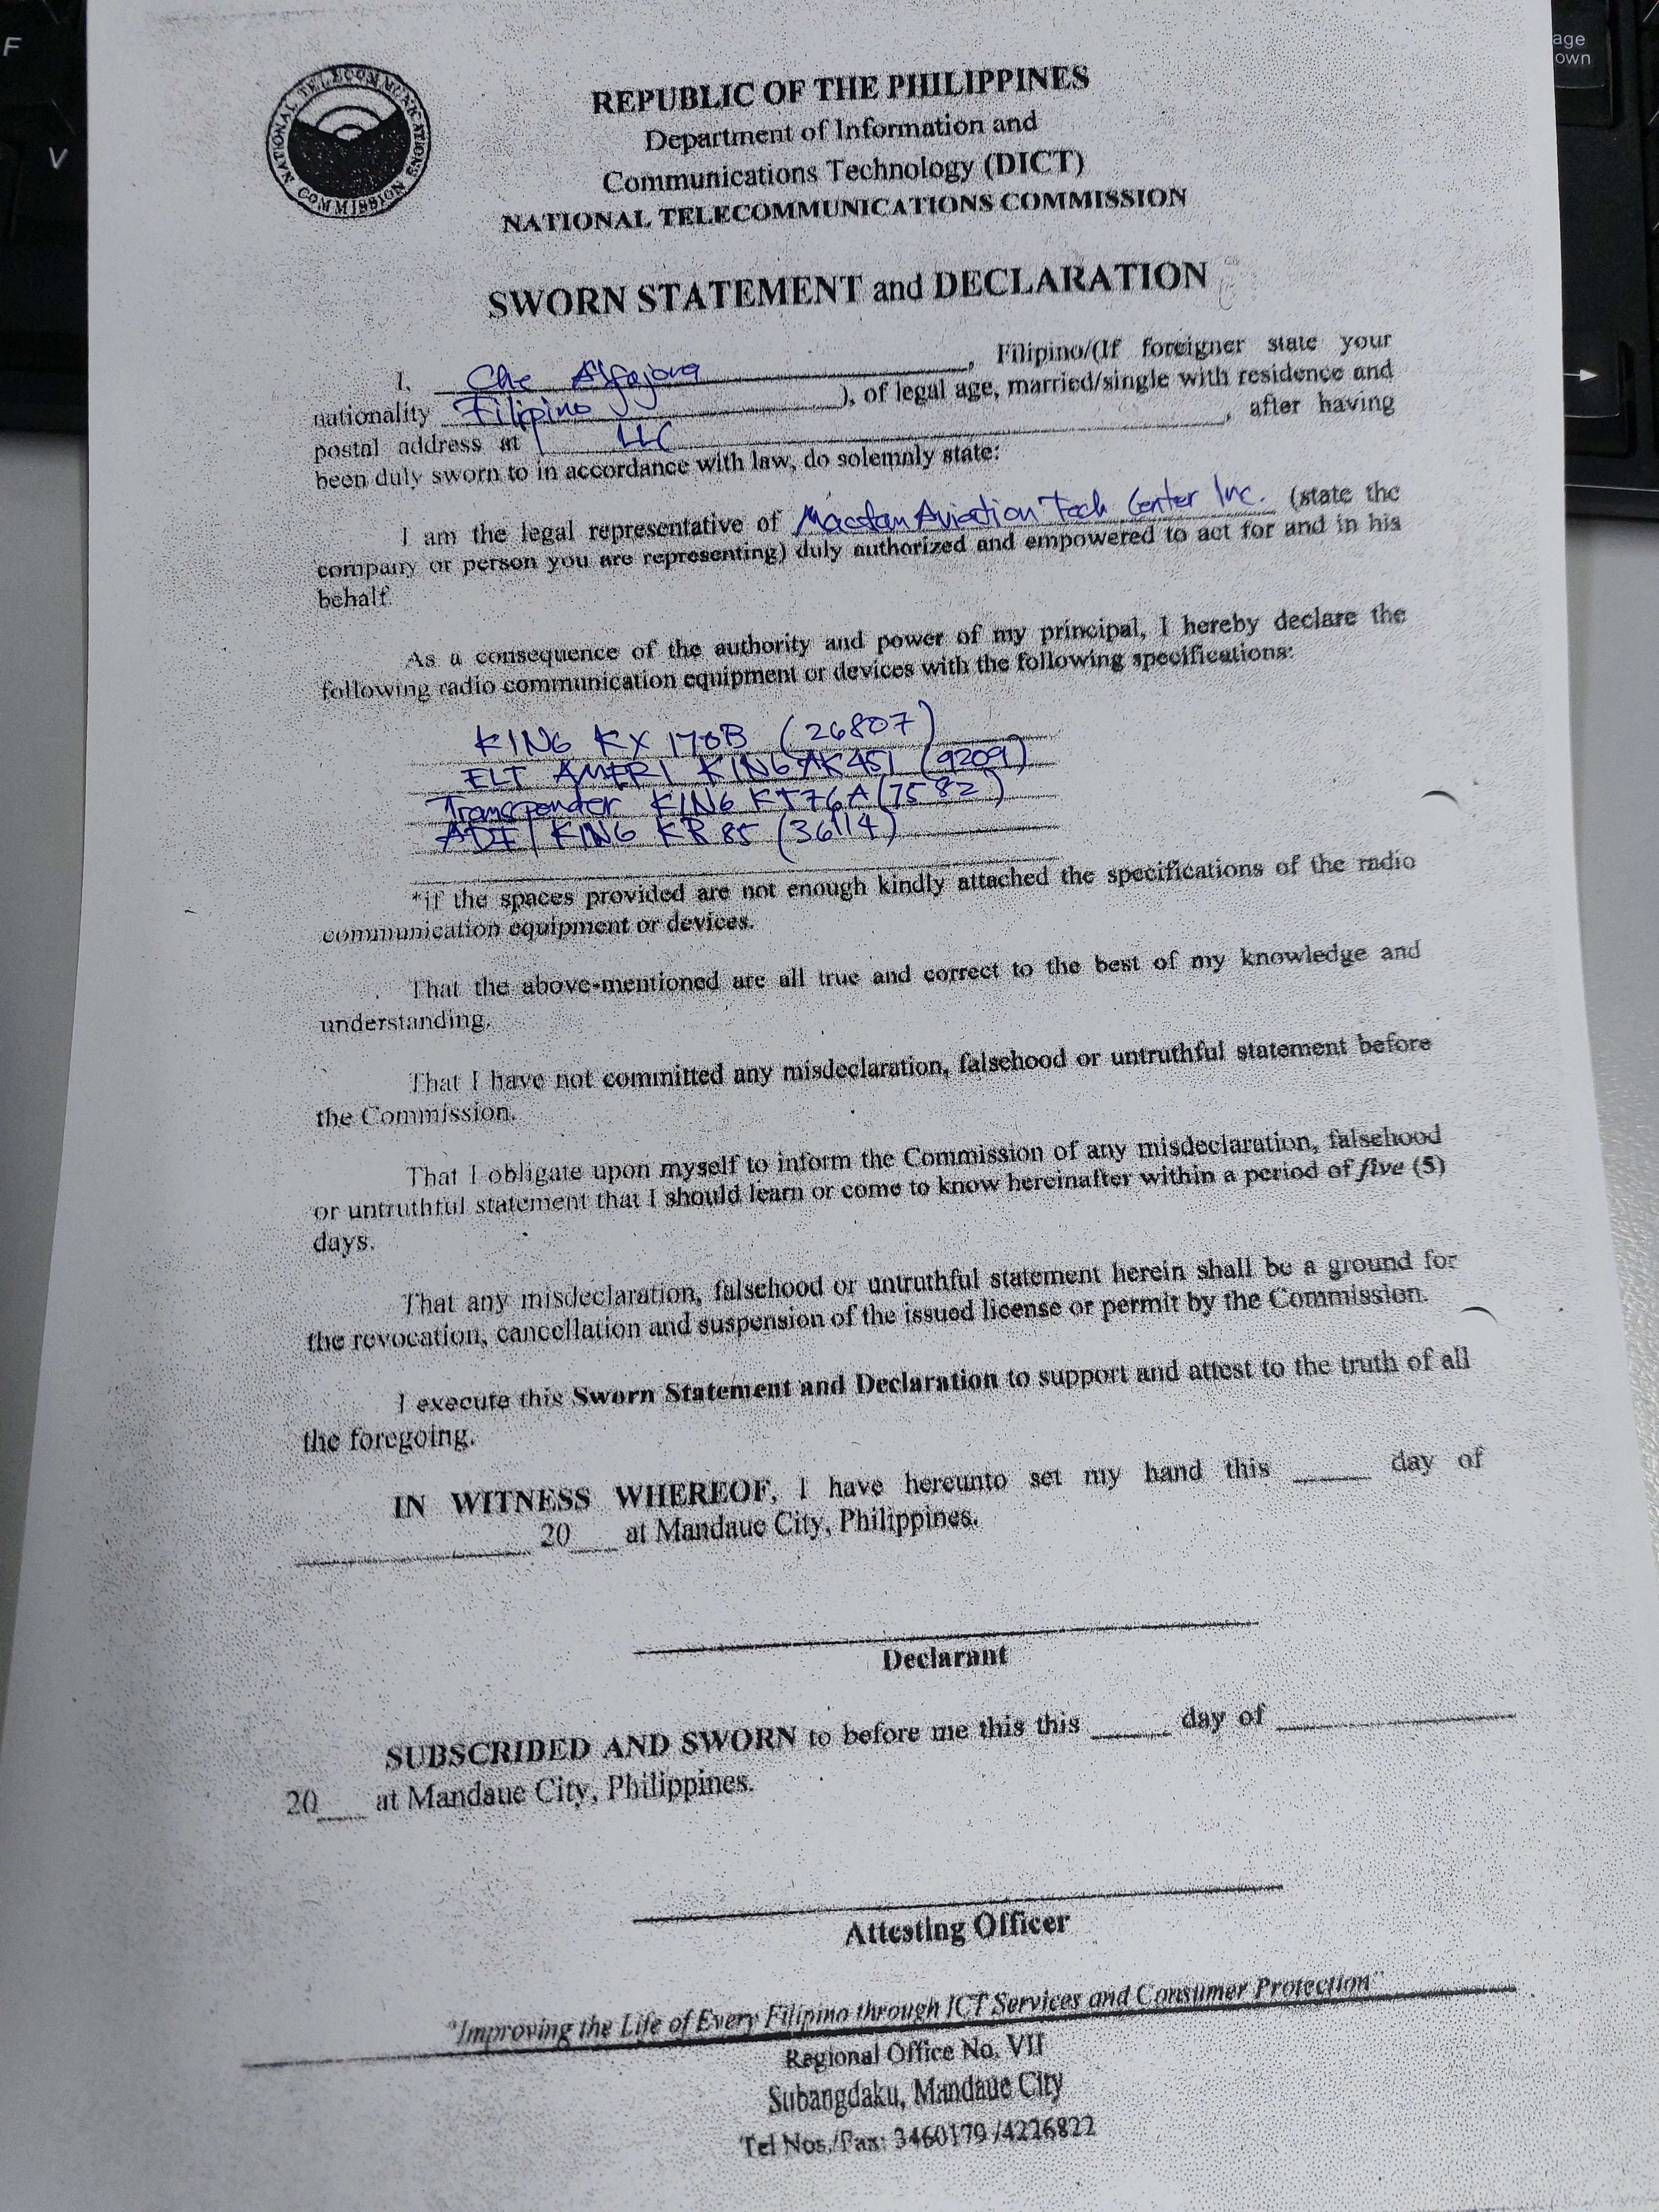 F
V
age
own
NATIONAL TELECOMMUNICATIONS COMMISSION
REPUBLIC OF THE PHILIPPINES
Department of Information and
Communications Technology (DICT)
NATIONAL TELECOMMUNICATIONS COMMISSION
SWORN STATEMENT and DECLARATION
I, Che Alfajora, Filipino/(If foreigner state your
nationality Filipino), of legal age, married/single with residence and
postal address at LLC, after having
been duly sworn to in accordance with law, do solemnly state:
I am the legal representative of Mactan Aviation Tech Center Inc. (state the
company or person you are representing) duly authorized and empowered to act for and in his
behalf.
As a consequence of the authority and power of my principal, I hereby declare the
following radio communication equipment or devices with the following specifications:
KING KX 170B (26807)
ELT AMERI KING AK451 (9209)
Transponder KING KT76A (7582)
ADF / KING KR 85 (36114)
*if the spaces provided are not enough kindly attached the specifications of the radio
communication equipment or devices.
That the above-mentioned are all true and correct to the best of my knowledge and
understanding.
That I have not committed any misdeclaration, falsehood or untruthful statement before
the Commission.
That I obligate upon myself to inform the Commission of any misdeclaration, falsehood
or untruthful statement that I should learn or come to know hereinafter within a period of five (5)
days.
That any misdeclaration, falsehood or untruthful statement herein shall be a ground for
the revocation, cancellation and suspension of the issued license or permit by the Commission.
I execute this Sworn Statement and Declaration to support and attest to the truth of all
the foregoing.
IN WITNESS WHEREOF, I have hereunto set my hand this _____ day of
_______________ 20___ at Mandaue City, Philippines.
Declarant
SUBSCRIBED AND SWORN to before me this this _____ day of _______________
20___ at Mandaue City, Philippines.
Attesting Officer
"Improving the Life of Every Filipino through ICT Services and Consumer Protection"
Regional Office No. VII
Subangdaku, Mandaue City
Tel Nos./Fax: 3460179 /4226822